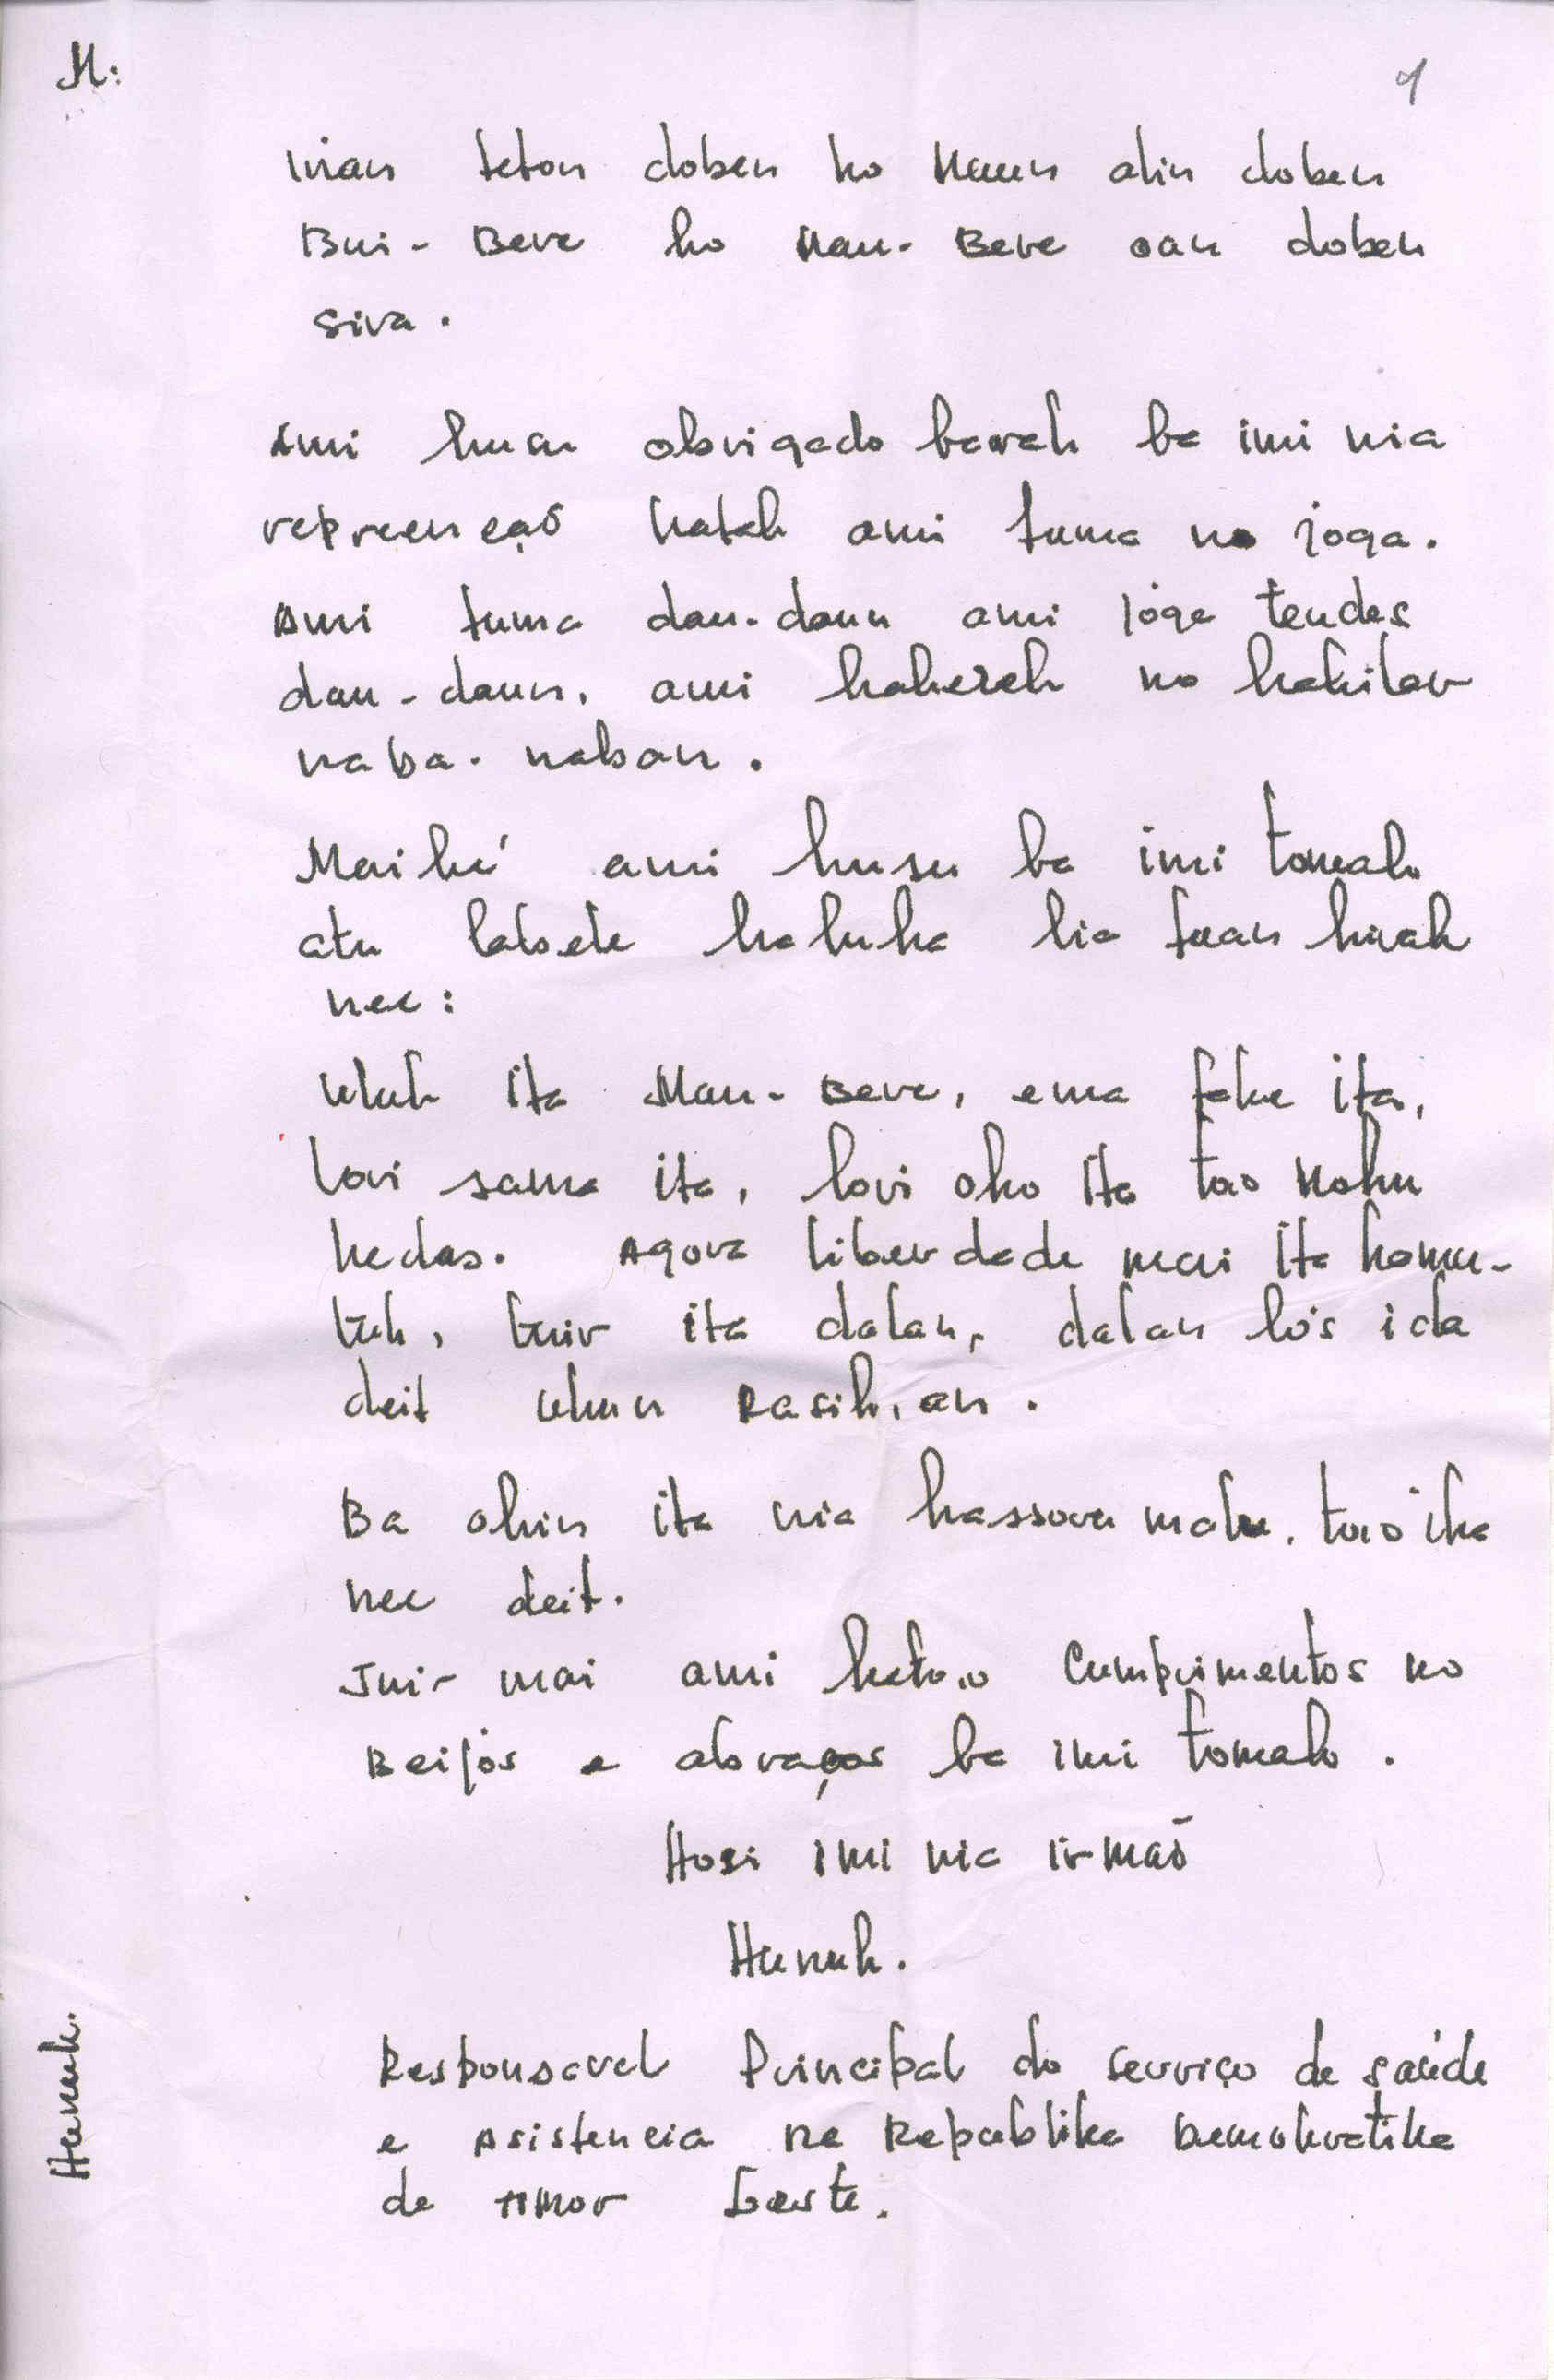 M:
inan feton doben ho Maun alin doben
Bui-Bere ho Mau-Bere oan doben
sira.
Ami husu obrigado barak ba imi nia
repreençaõ katak ami tuma no joga.
Ami tuma dau-daun ami joga tendes
dau-daun, ami hakerek no hakilar
naba-naban.
Maibé ami husu ba imi tomak
atu labele haluha lia fuan hirak
nee:
Uluk ita Mau-Bere, ema fahe ita,
lori sama ita, lori oho ita too Mohu
hedas. Agora liberdade mai ita hamu-
tuk, tuir ita dalan, dalan lós ida
deit ukun Rasik, an.
Ba ohin ita nia hassoru malu, too iha
nee deit.
Tuir mai ami hato,o Cumprimentos no
Beijos e abraços ba imi tomak.
Hosi imi nia irmaõ
Hanuk.
Responsavel Principal do Serviço de saúde
e Asistencia na Republika Demokratika
de Timor Leste.
Hanuk.